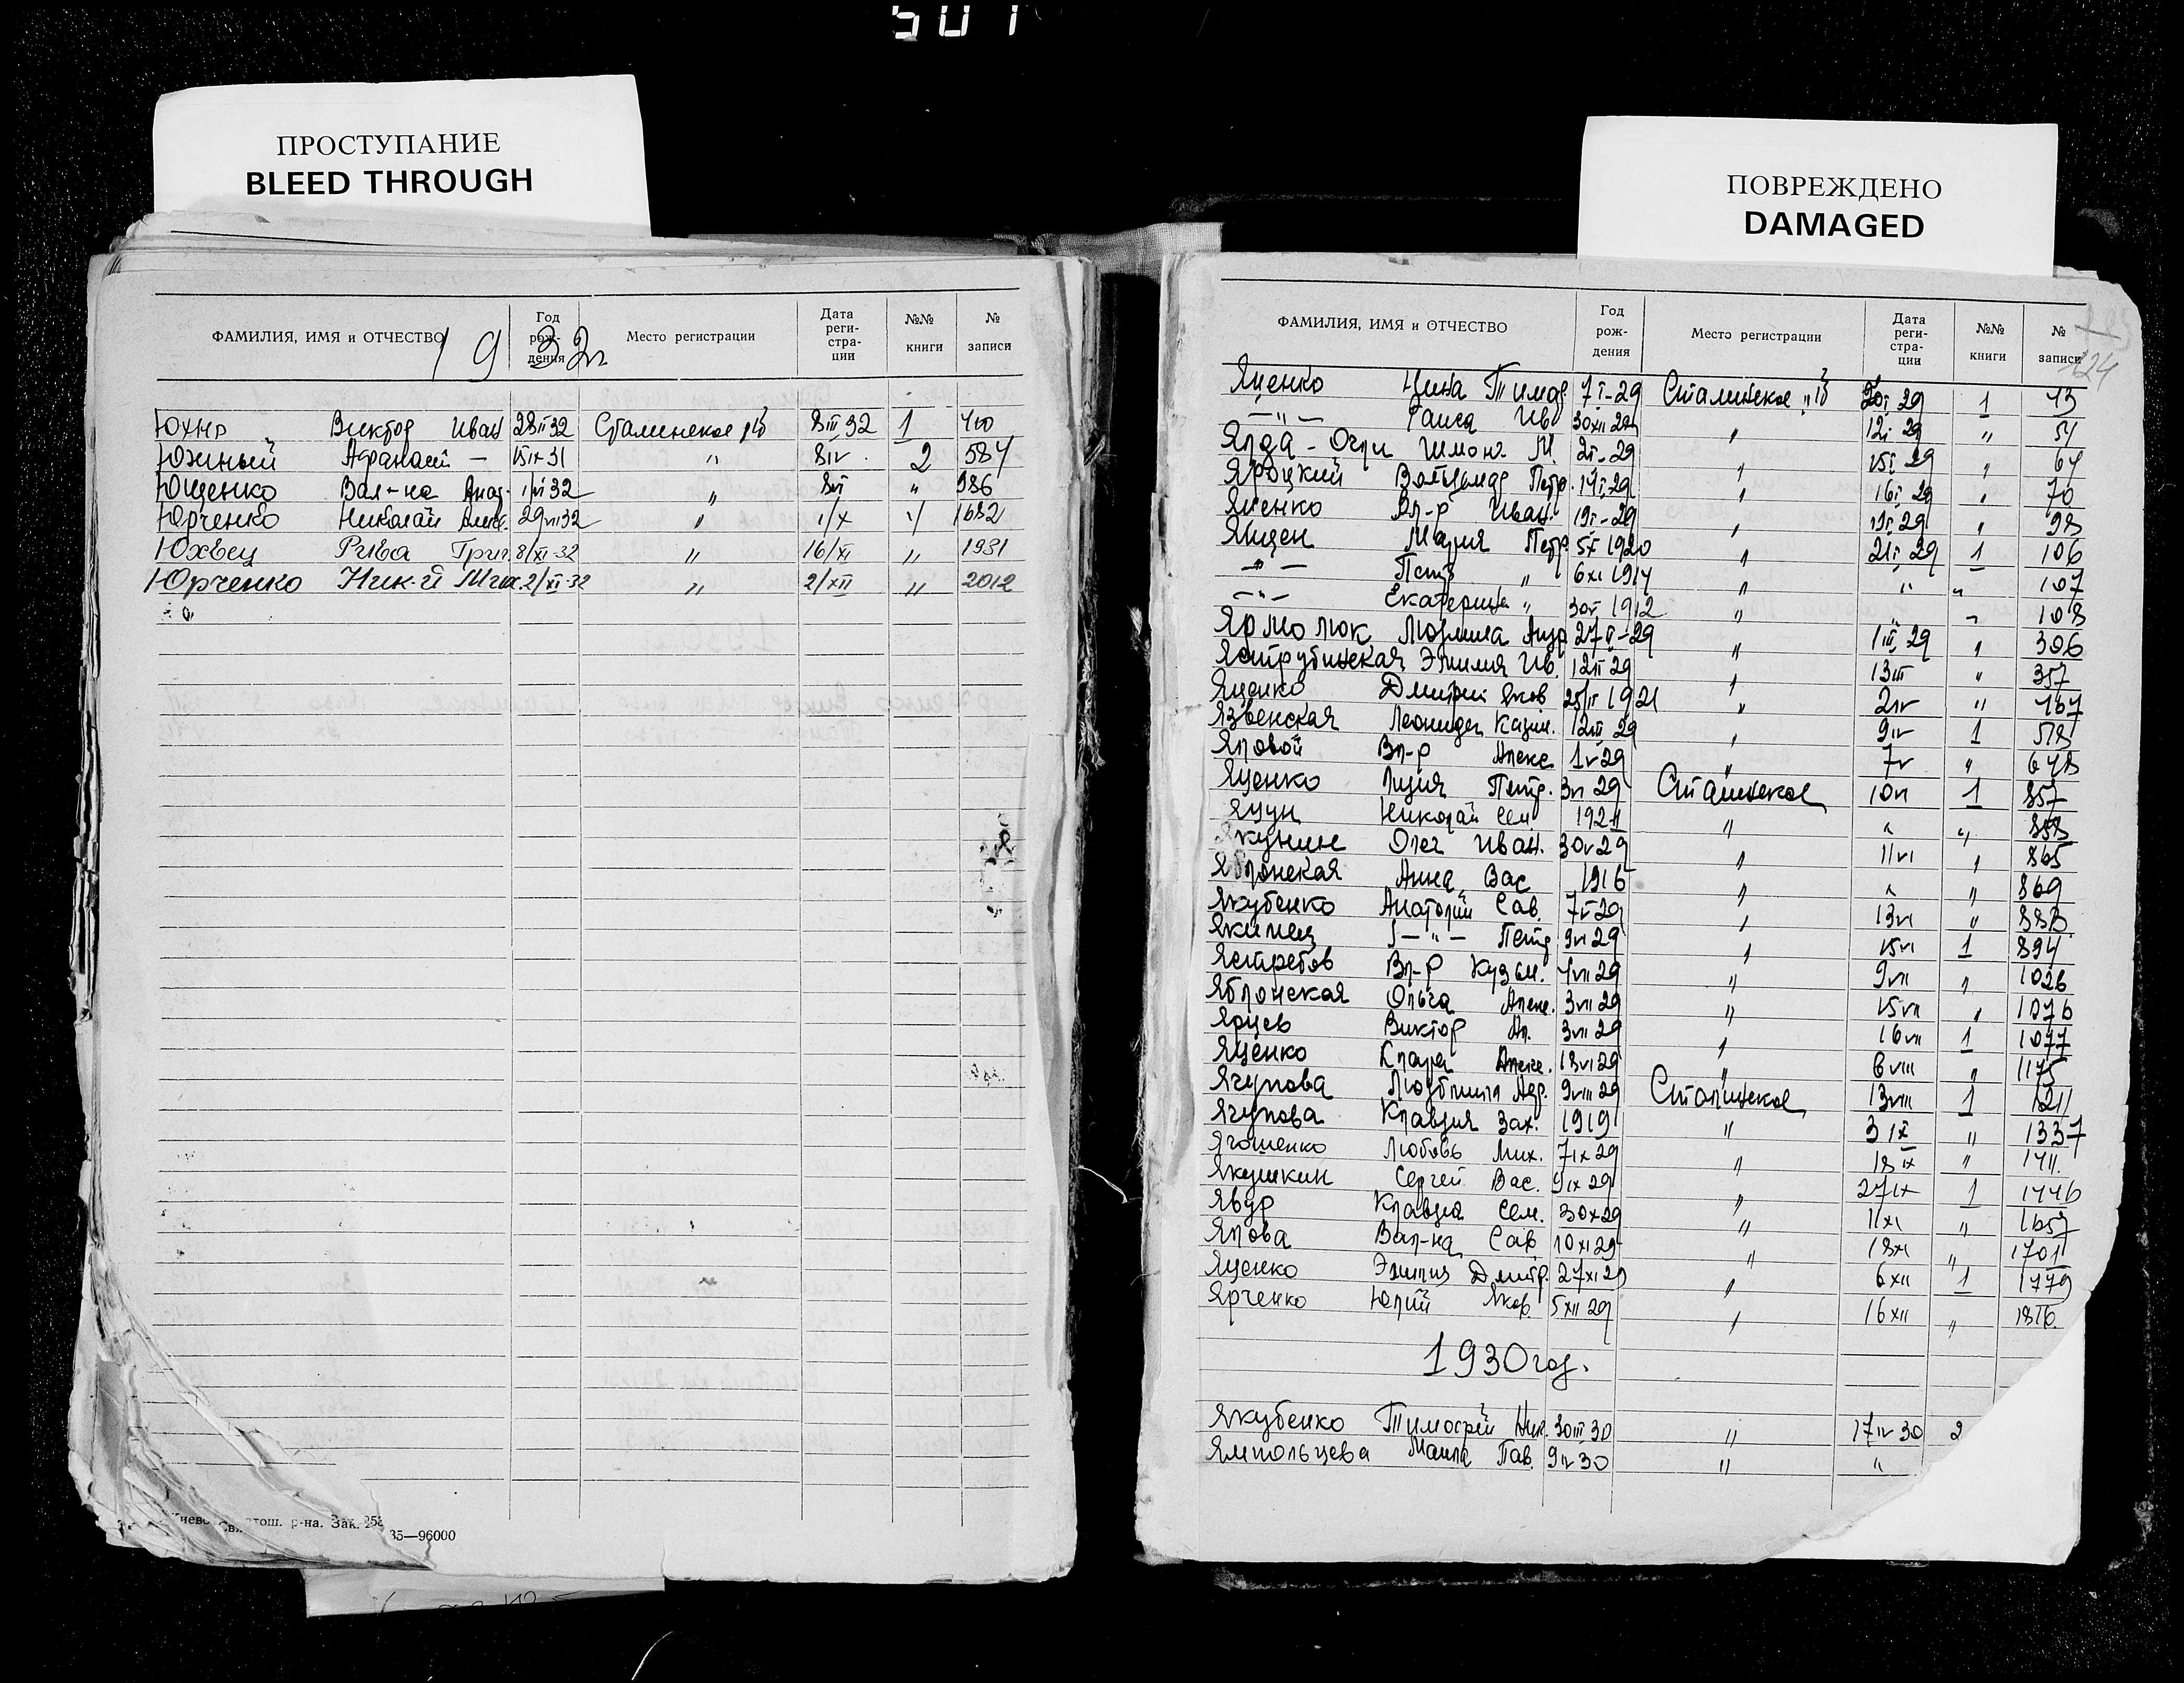 501
ПРОСТУПАНИЕ
BLEED THROUGH
ФАМИЛИЯ, ИМЯ и ОТЧЕСТВО Год рождения Место регистрации Дата регистрации №№ книги № записи
1932г
Юхно Виктор Иван 28 II 32 Сталинское 8 III 32 1 410
Южный Афанасий — 8 IV 2 584
Ющенко Вал-на 1 VI 32 " 8 VI " 986
Юрченко Николай Алек. 29 VII 32 " 1/X " 1682
Юхвец Рива Григ. 8/XI-32 " 16/XI " 1931
Юрченко Ник-й Мих. 2/XI-32 " 2/XII " 2012
35—96000
ПОВРЕЖДЕНО
DAMAGED
ФАМИЛИЯ, ИМЯ и ОТЧЕСТВО Год рождения Место регистрации Дата регистрации №№ книги № записи
224
Яценко Нина Тимоф. 7 I-29 Сталинское 29 1 43
—"— Раиса Ив 30 XII " 12 I 29 " 51
М. 2 I-29 " 15 I 29 " 64
Яроцкий Вольдемар Петр. 14 I 29 " 16 I 29 " 70
Вл-р Иван. 19 I-29 " 19 I 29 " 98
Янцен Мария Петр 5 X 1920 " 21 I 29 1 106
—"— Петр " 6 XI 1914 " " " 107
—"— Екатерина " 1912 " " 108
Ярмолюк Людмила Андр 27 II-29 " 1 III 29 " 306
Яструбинская Эмилия Ив. 12 II 29 " 13 III " 357
Яценко Дмитрий Яков 1921 " 2 IV " 467
Язвенская Леонида Казим. 12 III 29 " 9 IV 1 518
Яловой Вл-р Алекс 1 V 29 " 7 V " 648
Яценко Лидия Петр. 3 VI 29 Сталинское 10 VI 1 857
Яцун Николай Сем. " " " 858
Якунин Олег Иван. 30 V 29 " 11 VI " 865
Яблонская Анна Вас 1916 " " " 869
Якубенко Анатолий Сав. 7 V 29 " 13 VI " 888
Якимец —"— Петр 9 VI 29 " 15 VI 1 894
Ястребов Вл-р Кузьм. 4 VII 29 " 9 VII " 1026
Яблонская Ольга Алекс. 3 VII 29 " 15 VII " 1076
Ярцев Виктор Ал. 3 VII 29 " 16 VII 1 1077
Яценко Клара Алекс. 18 VI 29 " 6 VIII " 1175
Ячупова Людмила 9 VIII 29 Сталинское 13 VIII 1 1211
Ячупова Клавдия Зах. 1919 " 3 IX " 1337
Любовь Мих. 7 IX 29 " 18 IX " 1411
Якушкин Сергей Вас. 9 IX 29 " 27 IX 1 1446
Явур Клавдия Сем. 30 X 29 " 11 XI " 1657
Ялова Вал-на Сав 10 XI 29 " 18 XI " 1701
Яценко Эмилия Дмитр. 27 XI 29 " 6 XII 1 1779
Ярченко Юлий Яков. 5 XII 29 " 16 XII "
1930 год.
Якубенко Тимофей Ник. 30 III 30 " 17 IV 30 2
Ямпольцева Маила Пав. 9 IV 30 " "